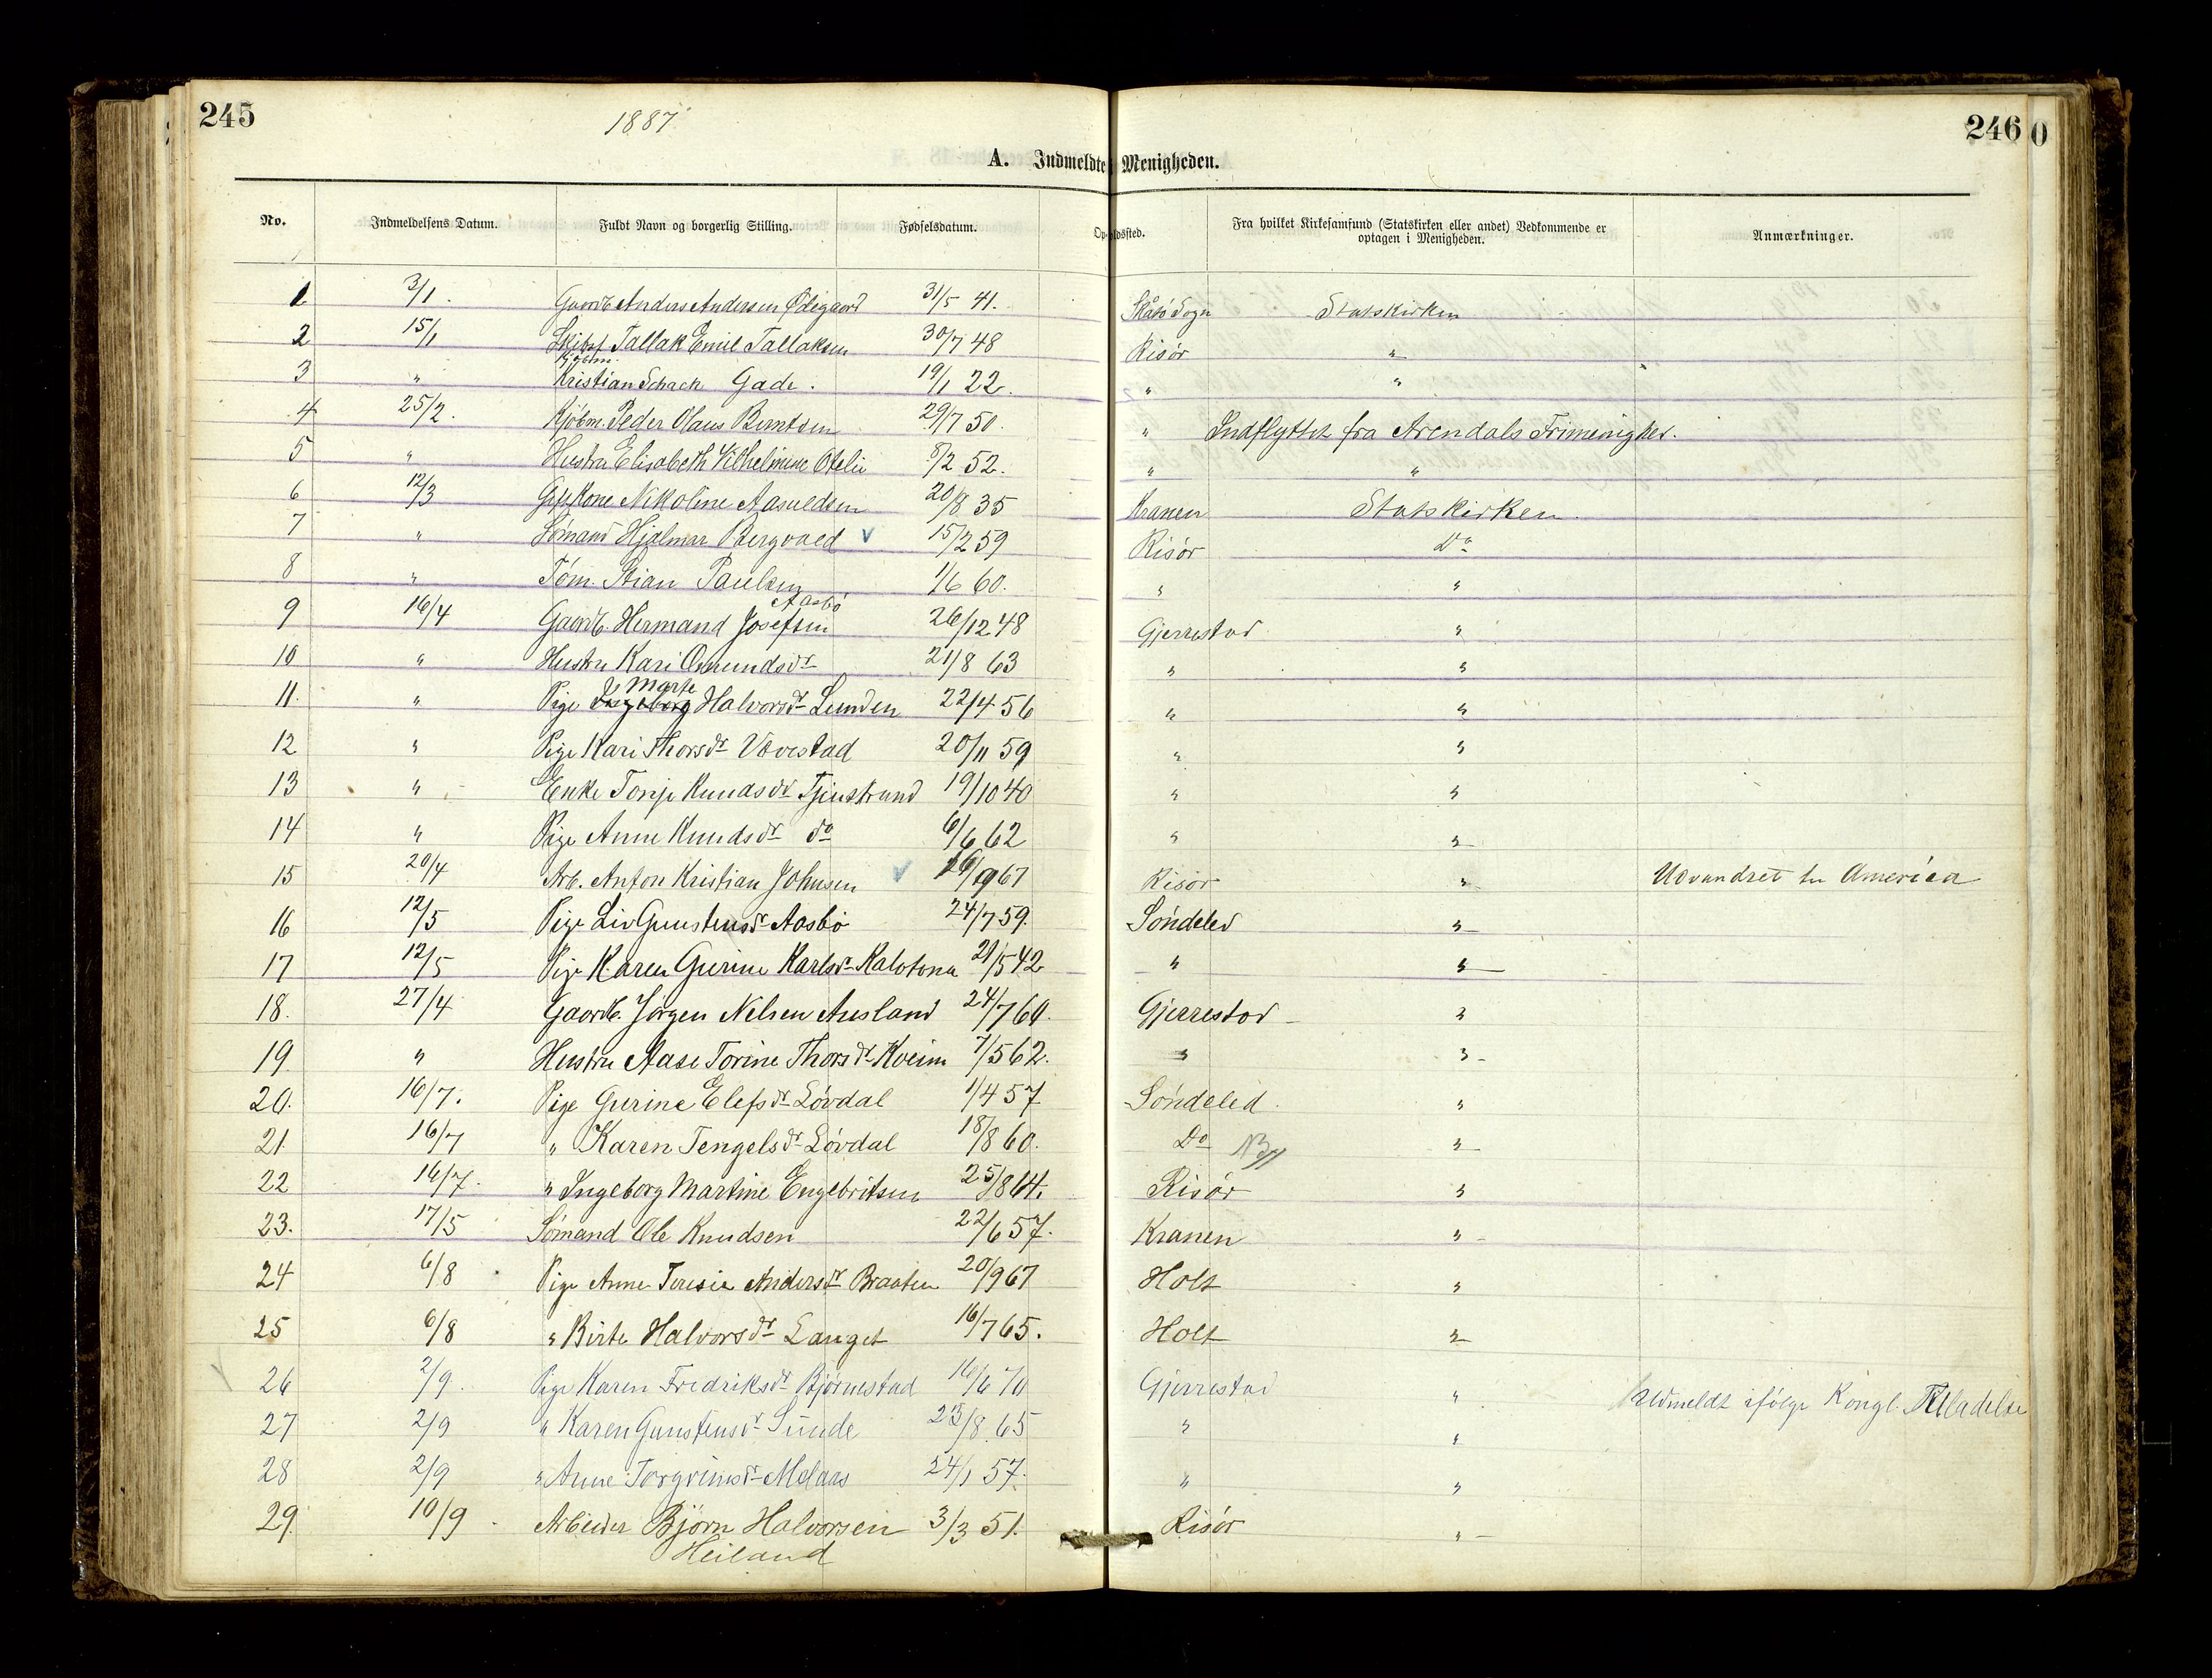 245
1887
246
0
A. Indmeldte i Menigheden.
No. Indmeldelsens Datum. Fuldt Navn og borgerlig Stilling. Fødselsdatum. Opholdssted. Fra hvilket Kirkesamfund (Statskirken eller andet) Vedkommende er optagen i Menigheden. Anmærkninger.
1 3/1. Gaardb. Anders Andersen Ødegaard 31/5 41. Skåtö Sogn Statskirken
2 15/1 Skibst. Tallak Emil Tallaksen 30/7 48 Risör "
3 " Kjøbm. Kristian Schach Gade. 19/1 22. " "
4 25/2. Kjöbm. Peder Olaus Berntsen 29/7 50. " Indflyttet fra Arendals Frimenighet.
5 " Hustru Elisabeth Vilhelmine Otelie 8/2 52. " "
6 12/3 Gift Kone Nikoline Aasuldsen 20/8 35 Kranen Statskirken.
7 " Sömand Hjalmar Bergvald 15/2 59 Risör Do
8 " Töm. Stian Paulsen 1/6 60. " "
9 16/4 Gaardb. Hermand Josefsen Aasbö 26/12 48 Gjerrestad "
10 " Hustru Kari Omundsdr 21/8 63 " "
11. " Pige Ingeborg Marte Halvorsdr Lunden 22/4 56 " "
12 " Pige Kari Thorsdr Vævestad 20/11 59 " "
13 " Enke Tonje Knudsdr Tjenstrand 19/10 40 " "
14 " Pige Anne Knudsdr do 6/6 62 " "
15 20/4 Arb. Anton Kristian Johnsen 16/9 67 Risör " Udvandret til America
16 12/5 Pige Liv Gunstensdr Aasbö 24/7 59. Söndeled "
17 12/5 Pige Karen Gurine Karlsdr 21/5 42 " "
18. 27/4 Gaardb. Jörgen Nelsen Ausland 24/7 60. Gjerrestad "
19. " Hustru Aase Torine Thorsdr Kveim 7/5 62. " "
20. 16/7. Pige Gurine Elefsdr Lövdal 1/4 57 Söndeled. "
21. 16/7 " Karen Tengelsdr Lövdal 18/8 60. Do NB "
22 16/7. " Ingeborg Martine Engebritsen 25/8 64. Risör "
23. 17/5 Sömand Ole Knudsen 22/6 57. Kranen "
24 6/8 Pige Anne Teresie Andersdr Braaten 20/9 67 Holt "
25 6/8 " Birte Halvorsdr Langet 16/7 65. Holt "
26 2/9. Pige Karen Fredriksdr Bjørnestad 16/6 70 Gjerrestad " Udmeldt ifölge Kongl. Tilladelse
27 2/9 " Karen Gunstensdr Sunde 25/8 65 " "
28 2/9 " Anne Torgrimsdr Melaas 24/1 57. " "
29. 10/9. Arbeider Björn Halvorsen 3/3 51. Risör "
Heiland